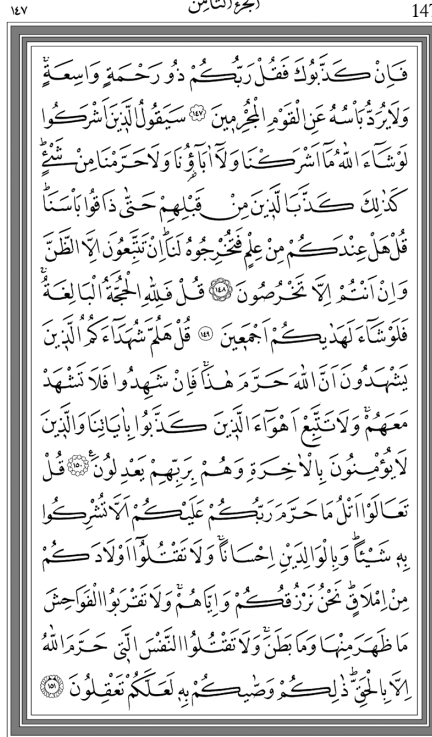 ١٤٧ الجزء الثامن 147
فَاِنْ كَذَّبُوكَ فَقُلْ رَبُّكُمْ ذُو رَحْمَةٍ وَاسِعَةٍۚ
وَلَا يُرَدُّ بَأْسُهُ عَنِ الْقَوْمِ الْمُجْرِمِينَ ﴿١٤٧﴾ سَيَقُولُ الَّذِينَ اَشْرَكُوا
لَوْ شَٓاءَ اللّٰهُ مَٓا اَشْرَكْنَا وَلَٓا اٰبَٓاؤُ۬نَا وَلَا حَرَّمْنَا مِنْ شَيْءٍۜ
كَذٰلِكَ كَذَّبَ الَّذِينَ مِنْ قَبْلِهِمْ حَتّٰى ذَاقُوا بَأْسَنَاۜ
قُلْ هَلْ عِنْدَكُمْ مِنْ عِلْمٍ فَتُخْرِجُوهُ لَنَاۜ اِنْ تَتَّبِعُونَ اِلَّا الظَّنَّ
وَاِنْ اَنْتُمْ اِلَّا تَخْرُصُونَ ﴿١٤٨﴾ قُلْ فَلِلّٰهِ الْحُجَّةُ الْبَالِغَةُۚ
فَلَوْ شَٓاءَ لَهَدٰيكُمْ اَجْمَعِينَ ﴿١٤٩﴾ قُلْ هَلُمَّ شُهَدَٓاءَكُمُ الَّذِينَ
يَشْهَدُونَ اَنَّ اللّٰهَ حَرَّمَ هٰذَاۚ فَاِنْ شَهِدُوا فَلَا تَشْهَدْ
مَعَهُمْۚ وَلَا تَتَّبِعْ اَهْوَٓاءَ الَّذِينَ كَذَّبُوا بِاٰيَاتِنَا وَالَّذِينَ
لَا يُؤْمِنُونَ بِالْاٰخِرَةِ وَهُمْ بِرَبِّهِمْ يَعْدِلُونَ۟ ﴿١٥٠﴾ قُلْ
تَعَالَوْا اَتْلُ مَا حَرَّمَ رَبُّكُمْ عَلَيْكُمْ اَلَّا تُشْرِكُوا
بِهِ شَيْـًٔا وَبِالْوَالِدَيْنِ اِحْسَانًاۚ وَلَا تَقْتُلُٓوا اَوْلَادَكُمْ
مِنْ اِمْلَاقٍۜ نَحْنُ نَرْزُقُكُمْ وَاِيَّاهُمْۚ وَلَا تَقْرَبُوا الْفَوَاحِشَ
مَا ظَهَرَ مِنْهَا وَمَا بَطَنَۚ وَلَا تَقْتُلُوا النَّفْسَ الَّتِي حَرَّمَ اللّٰهُ
اِلَّا بِالْحَقِّۜ ذٰلِكُمْ وَصّٰيكُمْ بِهِ لَعَلَّكُمْ تَعْقِلُونَ ﴿١٥١﴾